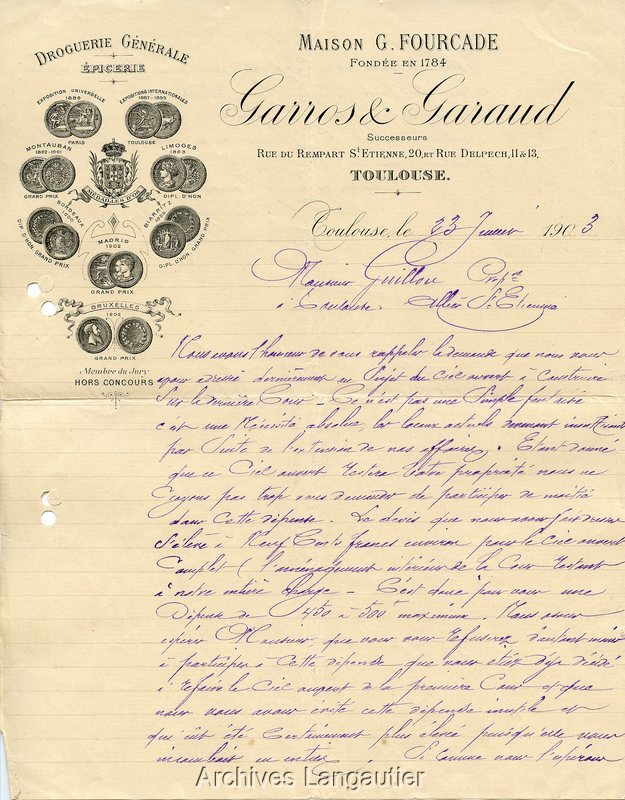 DROGUERIE GÉNÉRALE
ÉPICERIE
EXPOSITION UNIVERSELLE
1889
PARIS
EXPOSITIONS INTERNATIONALES
1887-1895
TOULOUSE
MONTAUBAN
GRAND PRIX
MÉDAILLES D'OR
LIMOGES
1893
DIPL. D'HON
BORDEAUX
DIP. D'HON GRAND PRIX
BIARRITZ
DIPL. D'HON GRAND PRIX
MADRID
1902
GRAND PRIX
BRUXELLES
1902
GRAND PRIX
Membre du Jury
HORS CONCOURS
MAISON G. FOURCADE
FONDÉE EN 1784
Garros & Garaud
Successeurs
RUE DU REMPART St ETIENNE, 20, ET RUE DELPECH, 11 & 13,
TOULOUSE.
Toulouse, le 23 1903
Monsieur Guillou Propre
à Toulouse. Allées St Etienne
Nous avons l'honneur de vous rappeler la demande que nous vous
avons adressé dernièrement au Sujet du Ciel ouvert à Construire
Sur la dernière Cour - Ce n'est pas une Simple fantaisie
c'est une Nécessité absolue les locaux actuels devenant insuffisants
par Suite de l'extension de nos affaires. Etant donné
que ce Ciel ouvert restera Votre propriété nous ne
croyons pas trop vous demander de participer de moitié
dans cette dépense. Le devis que nous avons fait dresser
S'élève à Neuf Cents francs environ pour le Ciel ouvert
Complet (l'aménagement intérieur de la Cour restant
à notre entière charge - C'est donc pour vous une
Dépense de 450 à 500 maximum. Nous osons
espérer Monsieur que vous vous refuserez d'autant moins
à participer à Cette dépense que vous étiez déjà décidé
à refaire le Ciel ouvert de la première Cour et que
nous vous avons évité cette dépense inutile et
qui eût été Certainement plus élevée puisqu'elle vous
incombait en entier. Si Comme nous l'espérons
Archives Langautier